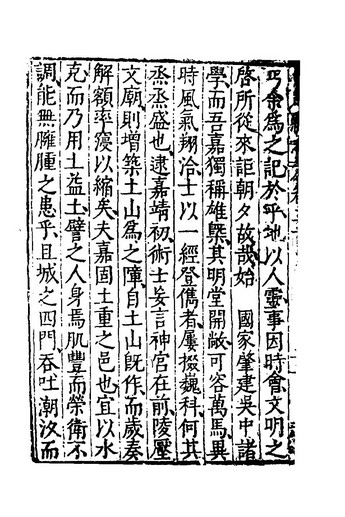 丐余為之記於乎地以人靈事因時會文明之
啓所從來詎朝夕故哉始 國家肇建吳中諸
學而吾嘉獨稱雄槩其明堂開敞可容萬馬異
時風氣翔洽士以一經登儁者屢掇巍科何其
烝烝盛也逮嘉靖初術士妄言神宮在前陵壓
文廟則增築土山為之障自土山旣作而歲奏
解額率寖以縮矣夫嘉固土重之邑也宜以水
克而乃用土益土譬之人身焉肌豐而榮衛不
調能無臃腫之患乎且城之四門吞吐潮汐而